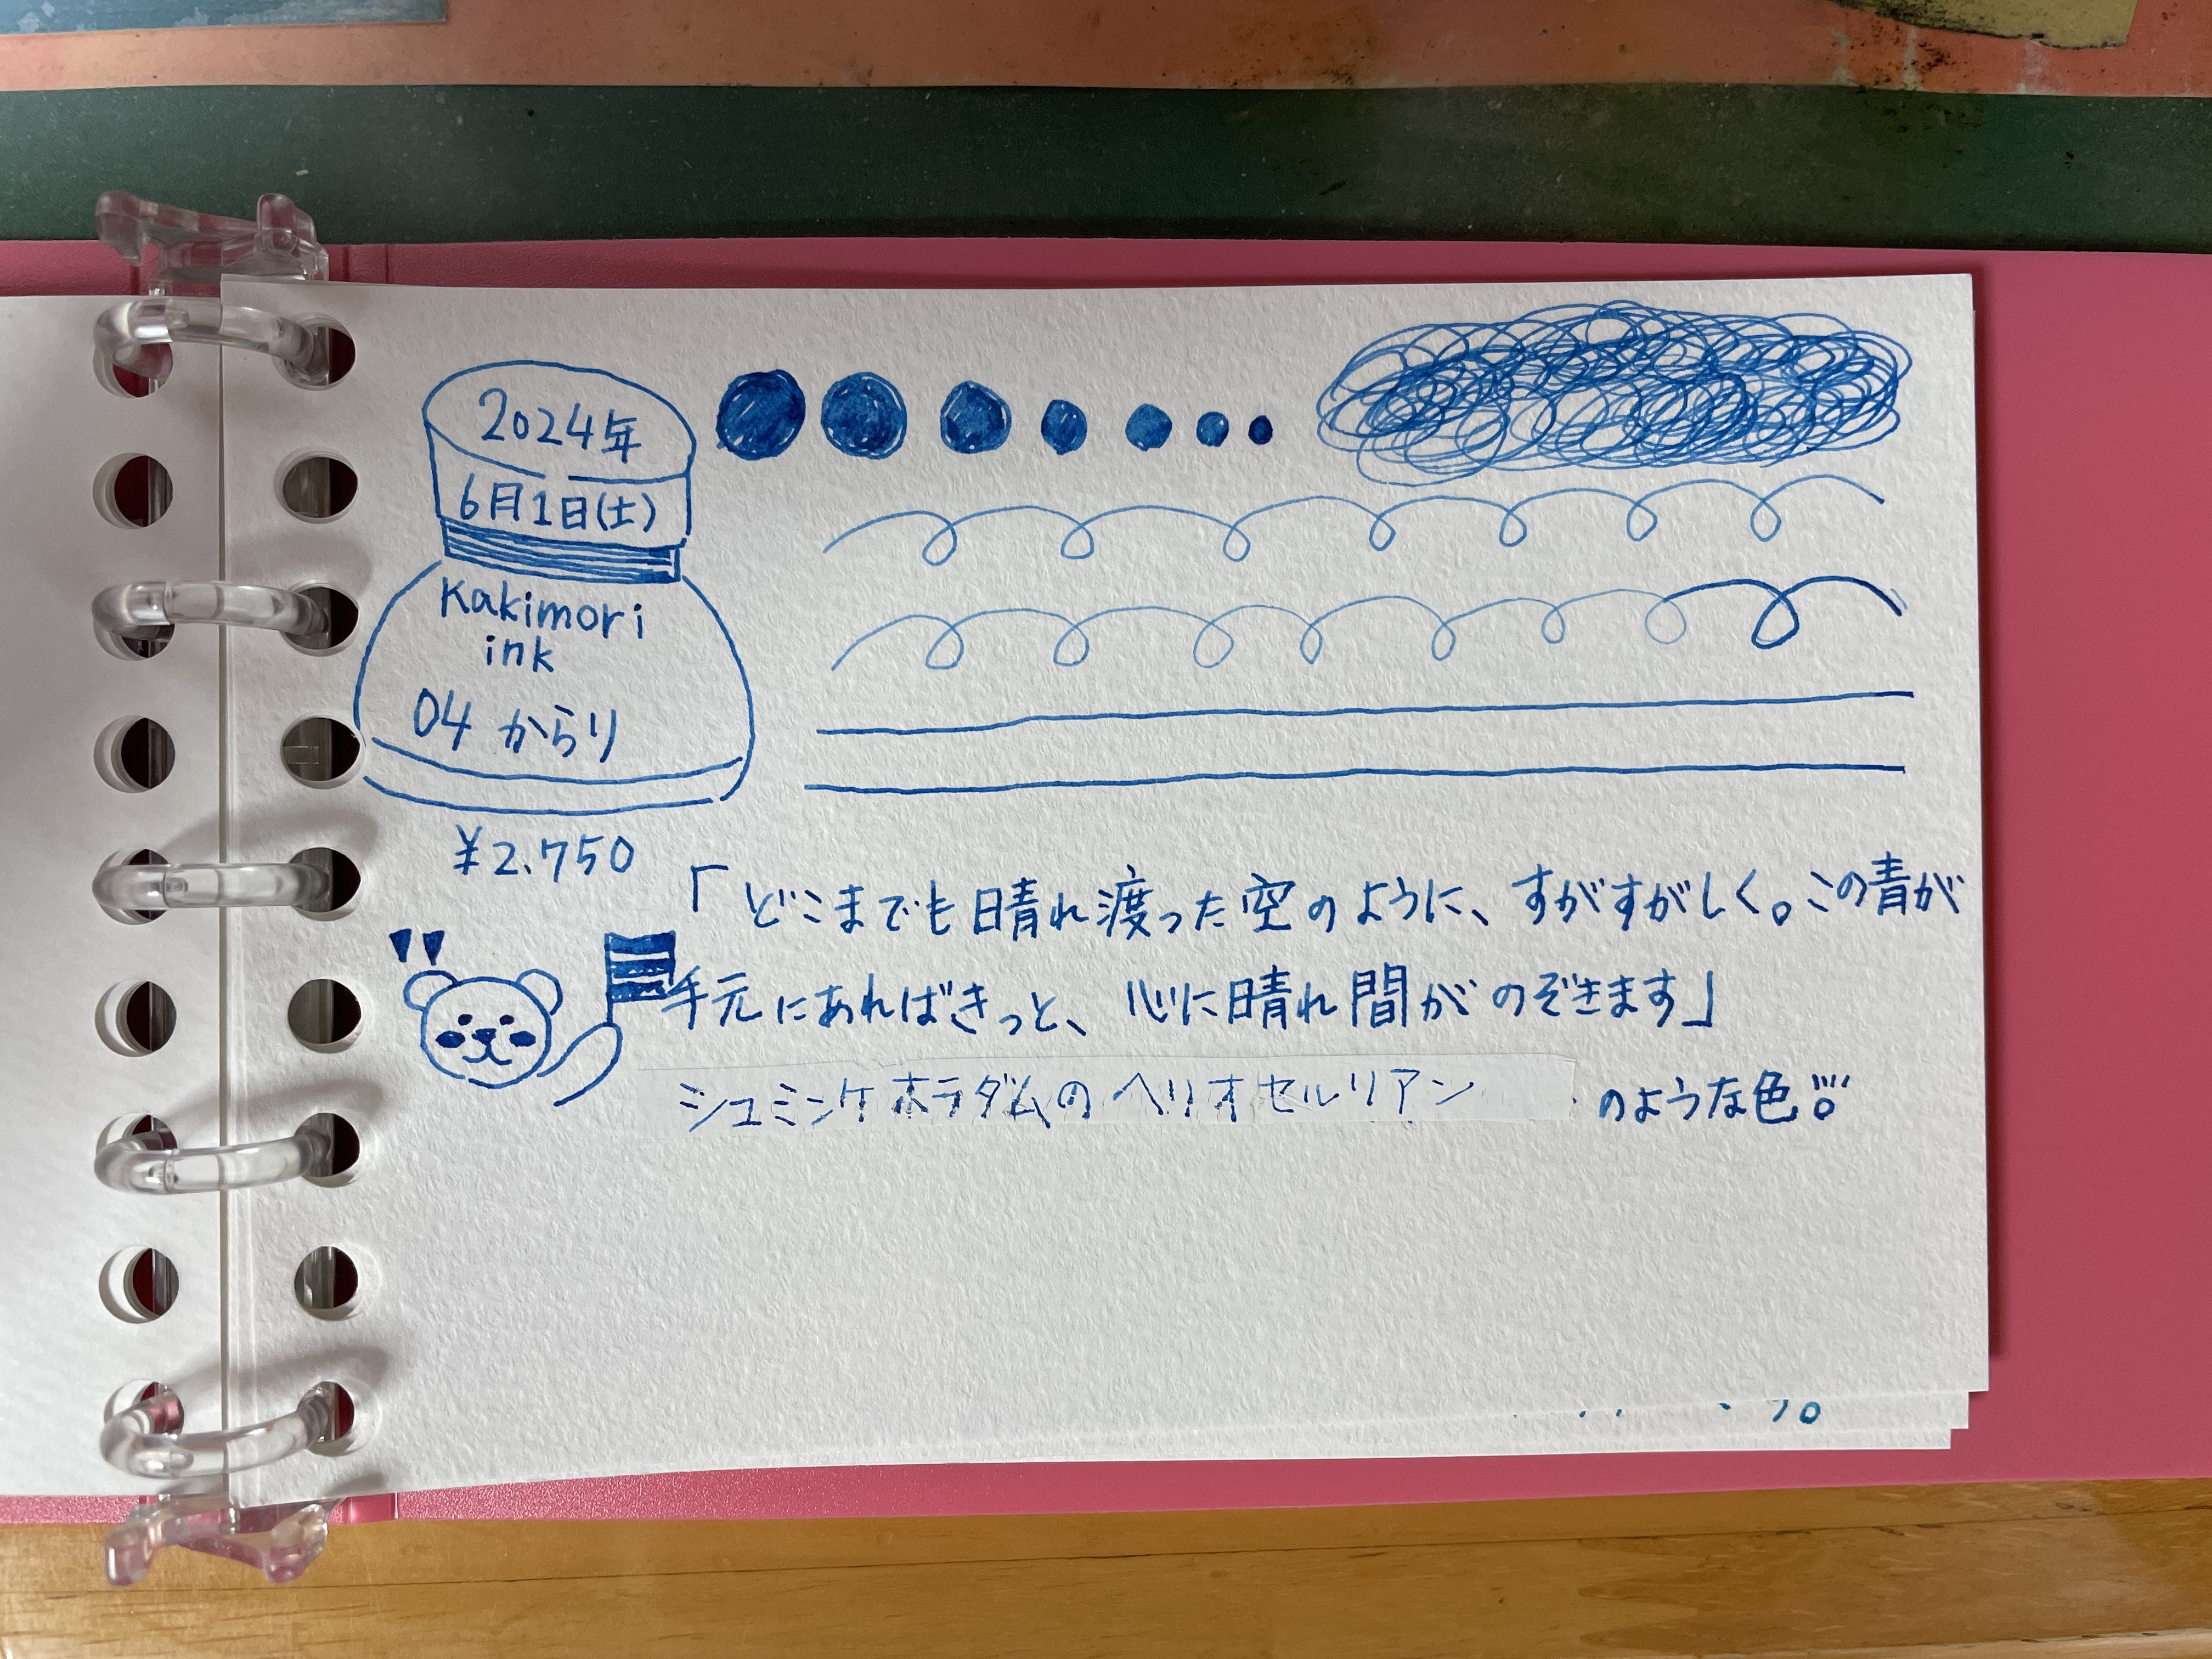 2024年
6月1日(土)
Kakimori
ink
04 からり
¥2.750
「どこまでも晴れ渡った空のように、すがすがしく。この青が
手元にあればきっと、心に晴れ間がのぞきます」
シュミンケホラダムのヘリオセルリアン のような色